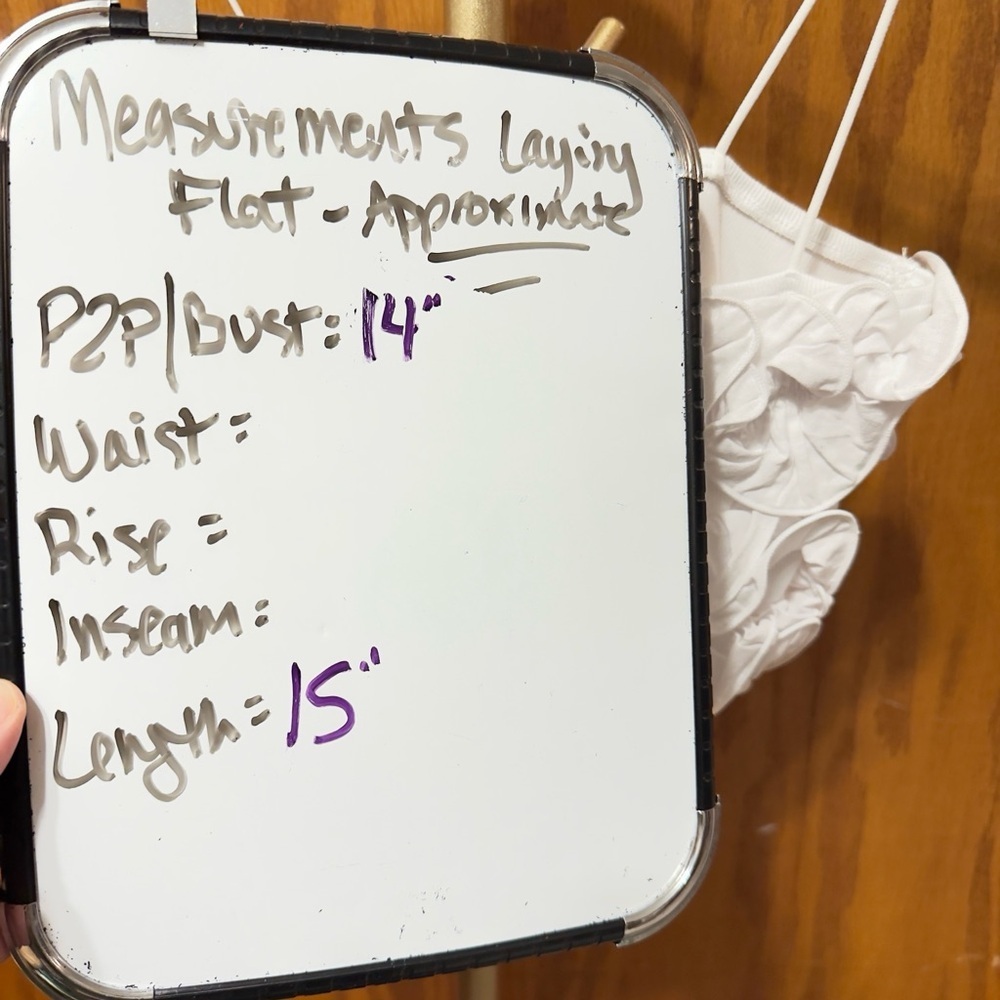 Measurements Laying
Flat - Approximate
P2P/Bust: 14"
Waist=
Rise =
Inseam:
Length= 15"